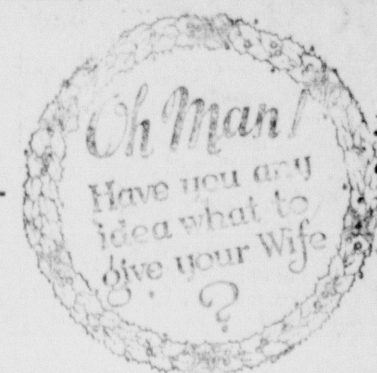 Oh Man!
Have you any
idea what to
give your Wife
?